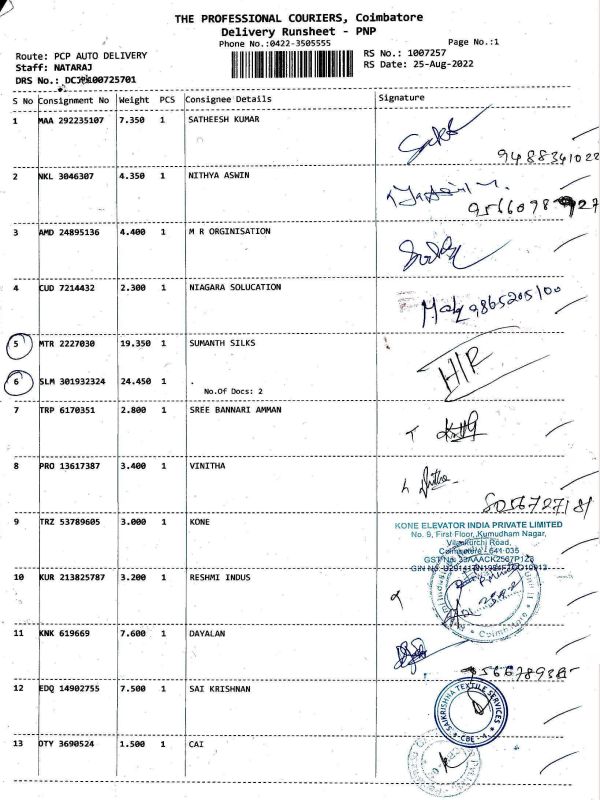 THE PROFESSIONAL COURIERS, Coimbatore
Delivery Runsheet - PNP
Phone No.:0422-3505555
Page No.:1
Route: PCP AUTO DELIVERY
RS No.: 1007257
Staff: NATARAJ
RS Date: 25-Aug-2022
DRS No.: 100725701
S No Consignment No Weight PCS Consignee Details Signature
1 MAA 292235107 7.350 1 SATHEESH KUMAR
9488341022
2 NKL 3046307 4.350 1 NITHYA ASWIN
3 AMD 24895136 4.400 1 M R ORGINISATION
4 CUD 7214432 2.300 1 NIAGARA SOLUCATION
9865205100
5 MTR 2227030 19.350 1 SUMANTH SILKS
H/R
6 SLM 301932324 24.450 1 .
No.Of Docs: 2
7 TRP 6170351 2.800 1 SREE BANNARI AMMAN
8 PRO 13617387 3.400 1 VINITHA
8056727181
9 TRZ 53789605 3.000 1 KONE
KONE ELEVATOR INDIA PRIVATE LIMITED
No. 9, First Floor, Kumudham Nagar,
Vilankurchi Road,
Coimbatore - 641 035
10 KUR 213825787 3.200 1 RESHMI INDUS
Coimbatore
11 KNK 619669 7.600 1 DAYALAN
12 EDQ 14902755 7.500 1 SAI KRISHNAN
SAIKRISHNA TEXTILE SERVICES
CBE - 4
13 OTY 3690524 1.500 1 CAI